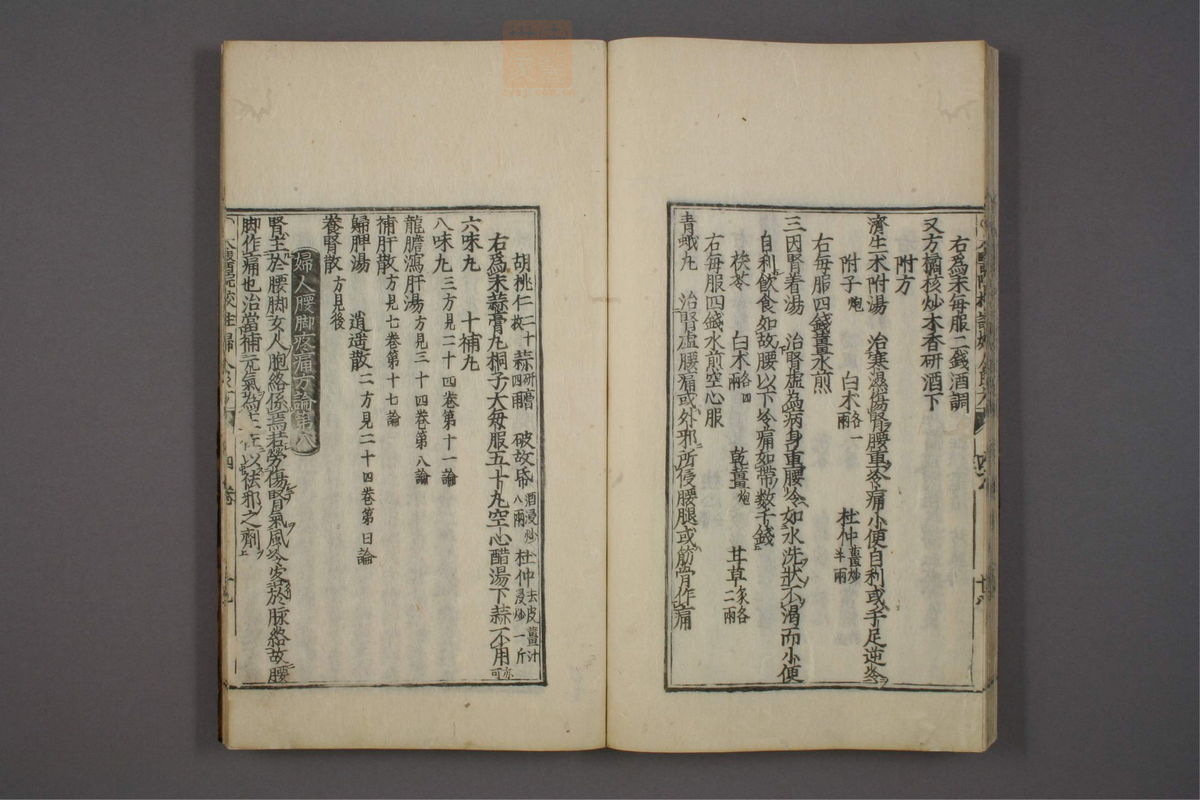 右爲末每服二錢酒調
又方橘核炒木香研酒下
附方
濟生朮附湯 治寒濕傷腎腰重冷痛小便自利或手足逆冷
附子炮 白朮各一兩 杜仲薑炒半兩
右每服四錢薑水煎
三因腎着湯 治腎虛爲病身重腰冷如水洗狀不渴而小便
自利飲食如故腰以下冷痛如帶數千錢
茯苓 白朮各四兩 乾薑炮 甘草炙各二兩
右每服四錢水煎空心服
青蛾丸 治腎虛腰痛或外邪所侵腰腿或筋骨作痛
胡桃仁二十枚 蒜研膏四兩 破故紙酒浸炒八兩 杜仲去皮薑汁浸炒一斤
右爲末蒜膏丸桐子大每服五十丸空心醋湯下蒜不用亦可
六味丸 十補丸
八味丸三方見二十四卷第十一論
龍膽瀉肝湯方見三十四卷第八論
補肝散方見七卷第十七論
歸脾湯 逍遥散二方見二十四卷第日論
養腎散方見後
婦人腰脚疼痛方論第八
腎主於腰脚女人胞絡係焉若勞傷腎氣風冷客於脉絡故腰
脚作痛也治當補元氣爲主佐以袪邪之劑
四卷